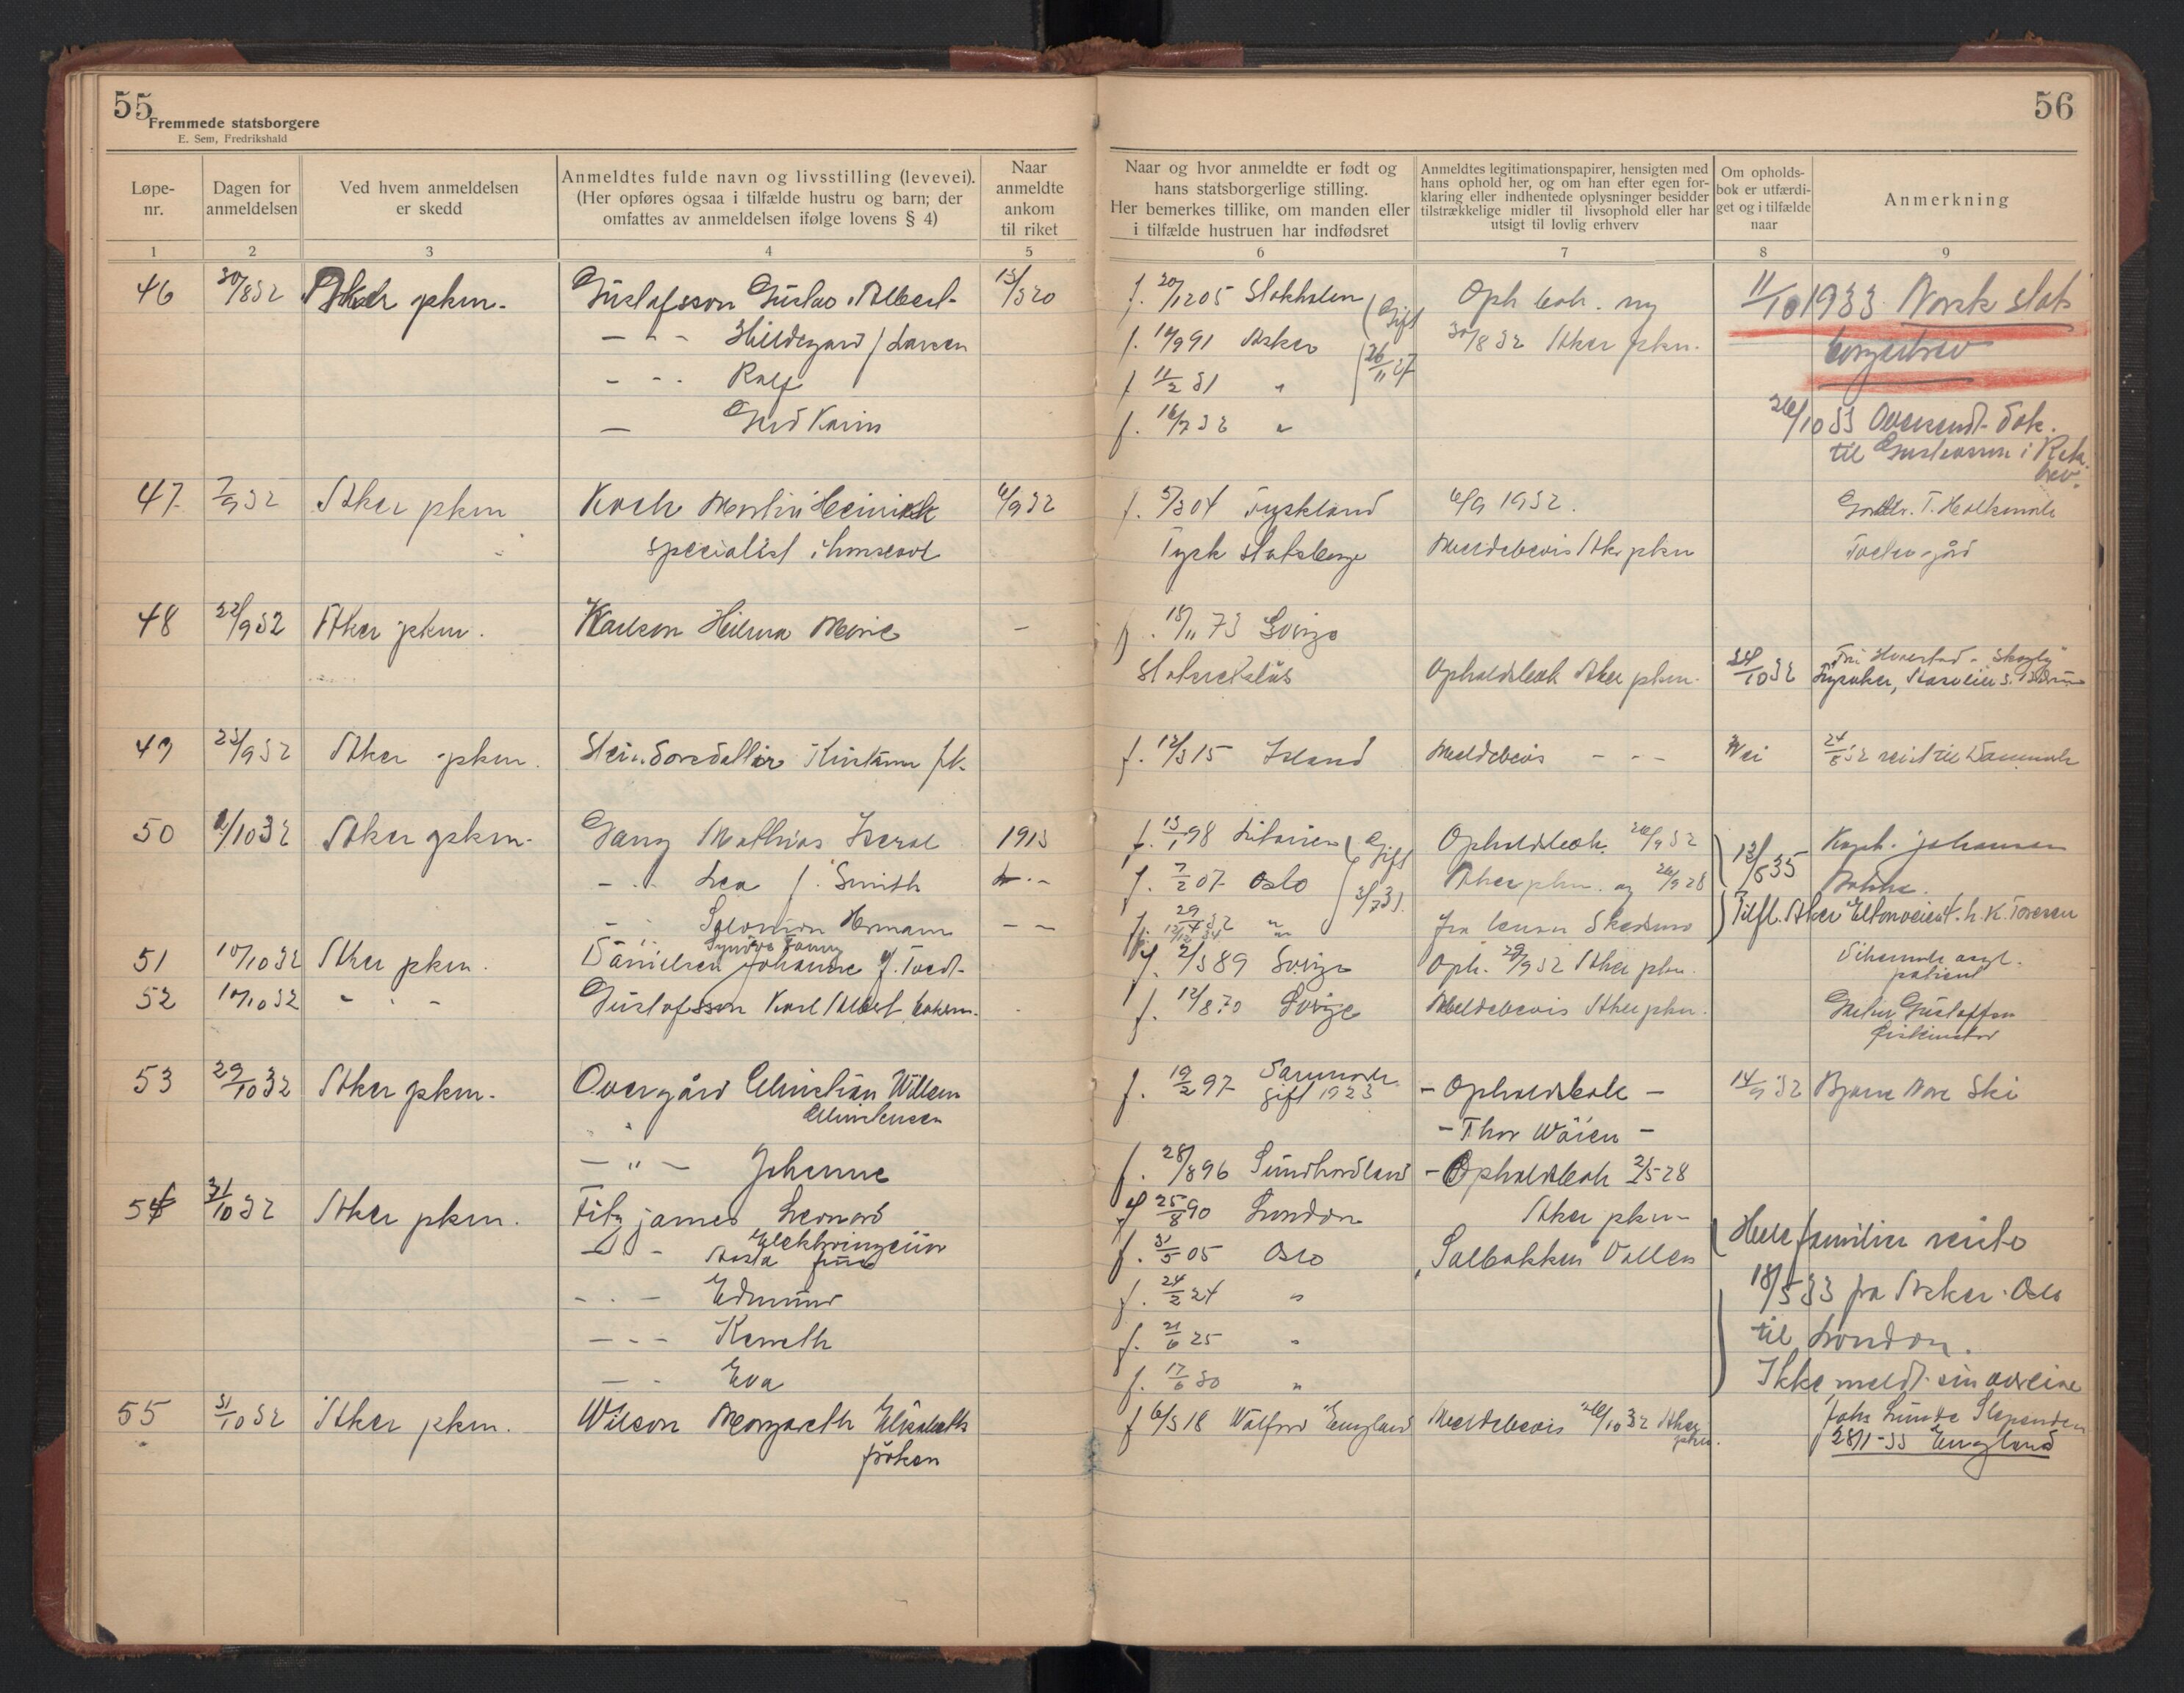 55
Fremmede statsborgere
E. Sem, Fredrikshald
56
Løpe-
nr.
Dagen for
anmeldelsen
Ved hvem anmeldelsen
er skedd
Anmeldtes fulde navn og livsstilling (levevei).
(Her opføres ogsaa i tilfælde hustru og barn; der
omfattes av anmeldelsen ifølge lovens § 4)
Naar
anmeldte
ankom
til riket
Naar og hvor anmeldte er født og
hans statsborgerlige stilling.
Her bemerkes tillike, om manden eller
i tilfælde hustruen har indfødsret
Anmeldtes legitimationspapirer, hensigten med
hans ophold her, og om han efter egen for-
klaring eller indhentede oplysninger besidder
tilstrækkelige midler til livsophold eller har
utsigt til lovlig erhverv
Om opholds-
bok er utfærdi-
get og i tilfælde
naar
Anmerkning
1 2 3 4 5 6 7 8 9
46 30/8 32 Aker pkm. Gustafsson Gustav Albert 13/3 20 f. 20/12 05 Stokholm Gift Oph bok. ny 11/10 1933 Norsk stats
- " - Hildegard f Larsen f. 14/9 91 Asker 26/11 27 30/8 32 Aker pkm. borgerbrev
- " - Rolf f. 11/2 31 "
— Gerd Karin f. 16/7 32 " 26/10 33 Oversendt dok.
til Gustavsson i Rek.
brev.
47. 7/9 32 Aker pkm Koch Martin Heinrich 6/9 32 f. 5/3 04 Tyskland 6/9 1932. Godtl. T. Holtsmark
specialist i Tysk statsborger Meldebevis Aker pkm gård
48 22/9 32 Aker pkm. Karlson Hilma Marie — f. 18/11 73 Sverige
statsløs Opholdsbok Aker pkm. 24/10 32 Lysaker,
49 23/9 32 Aker pkm. Steindorsdottir Kristinn frk. f. 12/3 15 Island Meldebevis - - - Nei 24/8 32 reist til Danmark
50 1/10 32 Aker pkm. Gang Mathias Iseral 1913 f. 13/1 98 Litauen Gift Opholdsbok. 26/9 32 12/6 35 Kaph. Johansen
- " - Lea f. Smith - " - f. 7/2 07 Oslo 3/7 31. Aker pkm. og 26/9 28
- " Salomon Herman — — f. 29/4 32 " fra lensm Skedsmo Tilfl. Aker Eltonveien 4. h. K. Toresen
Synøve Fanny f. 12/12 34 "
51 10/10 32 Aker pkm. Danielsen Johanne f. Toedt f. 2/3 89 Sverige Oph. 29/9 32 Aker pkm. Dikemark asyl.
patient
52 10/10 32 - " - Gustafsson Karl Albert f. 12/8 70 Sverige Meldebevis Aker pkm. Gustaffson
53 29/10 32 Aker pkm. Overgård Christian Willem f. 19/2 97 Danmark - Opholdsbok - 14/9 32 Bjarne Nore Ski
Christensen gift 1923 - Thor Wåien -
— " — Johanne f. 28/8 96 Sundhordland - Opholdsbok 2/5 28
54 31/10 32 Aker pkm. Fitzjames Leonard f. 25/8 90 London Aker pkm
Elektroingeniør
- " - Asta frue f. 31/5 05 Oslo "Solbakken" Vollen Hele familien reiste
- " - Edmund f. 24/2 24 " 18/5 33 fra Asker. Oslo
- - - Kenneth f. 21/6 25 " til London.
— - Eva f. 17/6 30 " Ikke meldt sin avreise
55 31/10 32 Aker pkm. Wilson Margareth Elisabeth f. 6/3 18 Walford England Meldebevis 26/10 32 Aker pkm. Johs Lunde Slependen
frøken 28/1-33 England